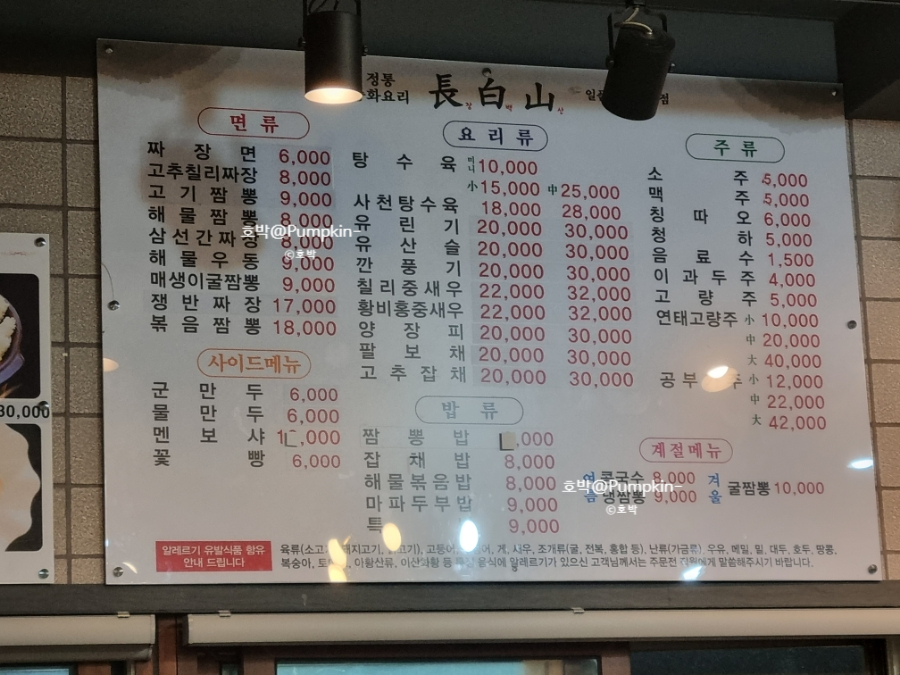 정통
화요리
長白山
장 백 산
일품
점
면 류
짜 장 면 6,000
고추칠리짜장 8,000
고 기 짬 뽕 9,000
해 물 짬 뽕 8,000
삼선간짜장 8,000
해 물 우 동 9,000
매생이굴짬뽕 9,000
쟁 반 짜 장 17,000
볶 음 짬 뽕 18,000
사이드메뉴
군 만 두 6,000
물 만 두 6,000
멘 보 샤 ,000
꽃 빵 6,000
요 리 류
탕 수 육 미니 10,000
小 15,000 中 25,000
사천탕수육 18,000 28,000
유 린 기 20,000 30,000
유 산 슬 20,000 30,000
깐 풍 기 20,000 30,000
칠리중새우 22,000 32,000
황비홍중새우 22,000 32,000
양 장 피 20,000 30,000
팔 보 채 20,000 30,000
고 추 잡 채 20,000 30,000
밥 류
짬 뽕 밥 ,000
잡 채 밥 8,000
해물볶음밥 8,000
마파두부밥 9,000
특 9,000
주 류
소 주 5,000
맥 주 5,000
칭 따 오 6,000
청 하 5,000
음 료 수 1,500
이 과 두 주 4,000
고 량 주 5,000
연태고량주 小 10,000
中 20,000
大 40,000
공 부 주 小 12,000
中 22,000
大 42,000
계절메뉴
여름 콩국수 8,000
냉짬뽕 9,000
겨울 굴짬뽕 10,000
알레르기 유발식품 함유
안내 드립니다
육류(소고기, 돼지고기, 닭고기), 고등어, 게, 새우, 조개류(굴, 전복, 홍합 등), 난류(가금류), 우유, 메밀, 밀, 대두, 호두, 땅콩,
복숭아, 토마토, 이황산류, 아산화황 등 음식에 알레르기가 있으신 고객님께서는 주문전 직원에게 말씀해주시기 바랍니다.
30,000
호박@Pumpkin~
©호박
호박@Pumpkin~
©호박